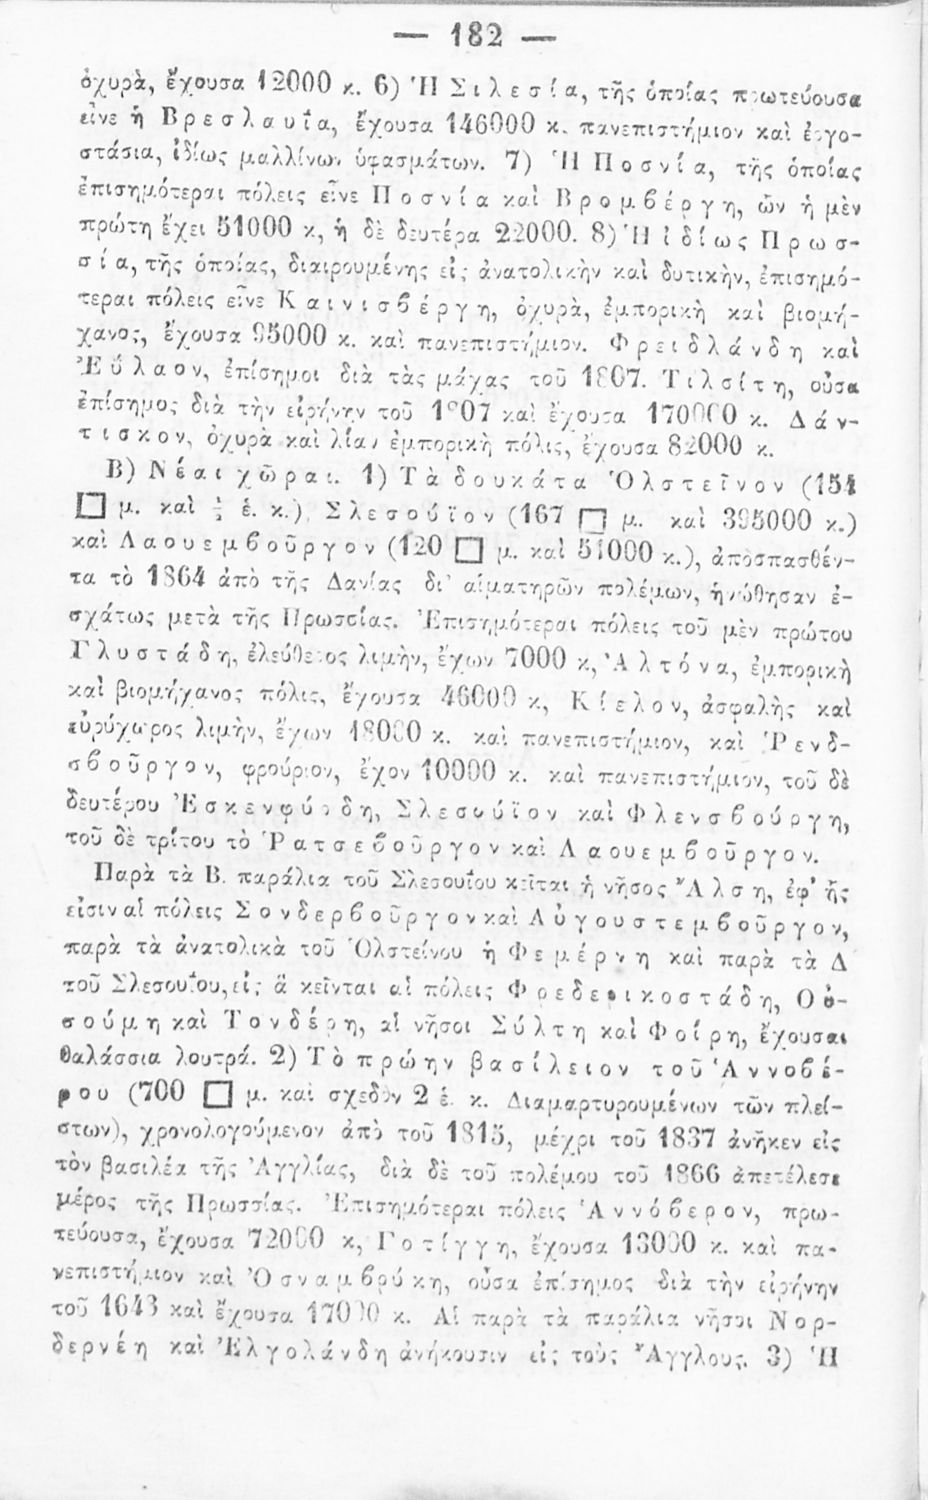 — 182 —
ὀχυρὰ, ἔχουσα 12000 κ. 6) Ἡ Σιλεσία, τῆς ὁποίας πρωτεύουσα
εἶνε ἡ Βρεσλαυΐα, ἔχουσα 146000 κ. πανεπιστήμιον καὶ ἐργο-
στάσια, ἰδίως μαλλίνων ὑφασμάτων. 7) Ἡ Ποσνία, τῆς ὁποίας
ἐπισημότεραι πόλεις εἶνε Ποσνία καὶ Βρομβέργη, ὧν ἡ μὲν
πρώτη ἔχει 51000 κ, ἡ δὲ δευτέρα 22000. 8) Ἡ ἰδίως Πρωσ-
σία, τῆς ὁποίας, διαιρουμένης εἰς ἀνατολικὴν καὶ δυτικὴν, ἐπισημό-
τεραι πόλεις εἶνε Καινισβέργη, ὀχυρὰ, ἐμπορικὴ καὶ βιομή-
χανος, ἔχουσα 95000 κ. καὶ πανεπιστήμιον. Φρειδλάνδη καὶ
Ἐΰλαον, ἐπίσημοι διὰ τὰς μάχας τοῦ 1807. Τιλσίτη, οὖσα
ἐπίσημος διὰ τὴν εἰρήνην τοῦ 1807 καὶ ἔχουσα 170000 κ. Δάν-
τισκον, ὀχυρὰ καὶ λίαν ἐμπορικὴ πόλις, ἔχουσα 82000 κ.
Β) Νέαι χῶραι. 1) Τὰ δουκάτα Ὁλστεῖνον (154
□ μ. καὶ ½ ἑ. κ.), Σλεσουΐον (167 □ μ. καὶ 395000 κ.)
καὶ Λαουεμβοῦργον (120 □ μ. καὶ 51000 κ.), ἀποσπασθέν-
τα τὸ 1864 ἀπὸ τῆς Δανίας δι' αἱματηρῶν πολέμων, ἡνώθησαν ἐ-
σχάτως μετὰ τῆς Πρωσσίας. Ἐπισημότεραι πόλεις τοῦ μὲν πρώτου
Γλυστάδη, ἐλεύθερος λιμὴν, ἔχων 7000 κ, Ἀλτόνα, ἐμπορικὴ
καὶ βιομήχανος πόλις, ἔχουσα 46000 κ, Κίελον, ἀσφαλὴς καὶ
εὐρύχωρος λιμὴν, ἔχων 18000 κ. καὶ πανεπιστήμιον, καὶ Ῥενδ-
σβοῦργον, φρούριον, ἔχον 10000 κ. καὶ πανεπιστήμιον, τοῦ δὲ
δευτέρου Ἐσκενφύρδη, Σλεσουΐον καὶ Φλενσβούργη,
τοῦ δὲ τρίτου τὸ Ῥατσεβοῦργον καὶ Λαουεμβοῦργον.
Παρὰ τὰ Β. παράλια τοῦ Σλεσουΐου κεῖται ἡ νῆσος Ἄλση, ἐφ' ἧς
εἰσιν αἱ πόλεις Σονδερβοῦργον καὶ Αὐγουστεμβοῦργον,
παρὰ τὰ ἀνατολικὰ τοῦ Ὁλστείνου ἡ Φεμέρνη καὶ παρὰ τὰ Δ
τοῦ Σλεσουΐου, εἰς ἃ κεῖνται αἱ πόλεις Φρεδερικοστάδη, Οὐ-
σούμη καὶ Τονδέρη, αἱ νῆσοι Σύλτη καὶ Φοίρη, ἔχουσαι
θαλάσσια λουτρά. 2) Τὸ πρώην βασίλειον τοῦ Ἀννοβέ-
ρου (700 □ μ. καὶ σχεδὸν 2 ἑ. κ. Διαμαρτυρουμένων τῶν πλεί-
στων), χρονολογούμενον ἀπὸ τοῦ 1815, μέχρι τοῦ 1837 ἀνῆκεν εἰς
τὸν βασιλέα τῆς Ἀγγλίας, διὰ δὲ τοῦ πολέμου τοῦ 1866 ἀπετέλεσε
μέρος τῆς Πρωσσίας. Ἐπισημότεραι πόλεις Ἀννόβερον, πρω-
τεύουσα, ἔχουσα 72000 κ, Γοτίγγη, ἔχουσα 13000 κ. καὶ πα-
νεπιστήμιον καὶ Ὀσναμβρύκη, οὖσα ἐπίσημος διὰ τὴν εἰρήνην
τοῦ 1648 καὶ ἔχουσα 17000 κ. Αἱ παρὰ τὰ παράλια νῆσοι Νορ-
δερνέη καὶ Ἑλγολάνδη ἀνήκουσιν εἰς τοὺς Ἄγγλους. 3) Ἡ